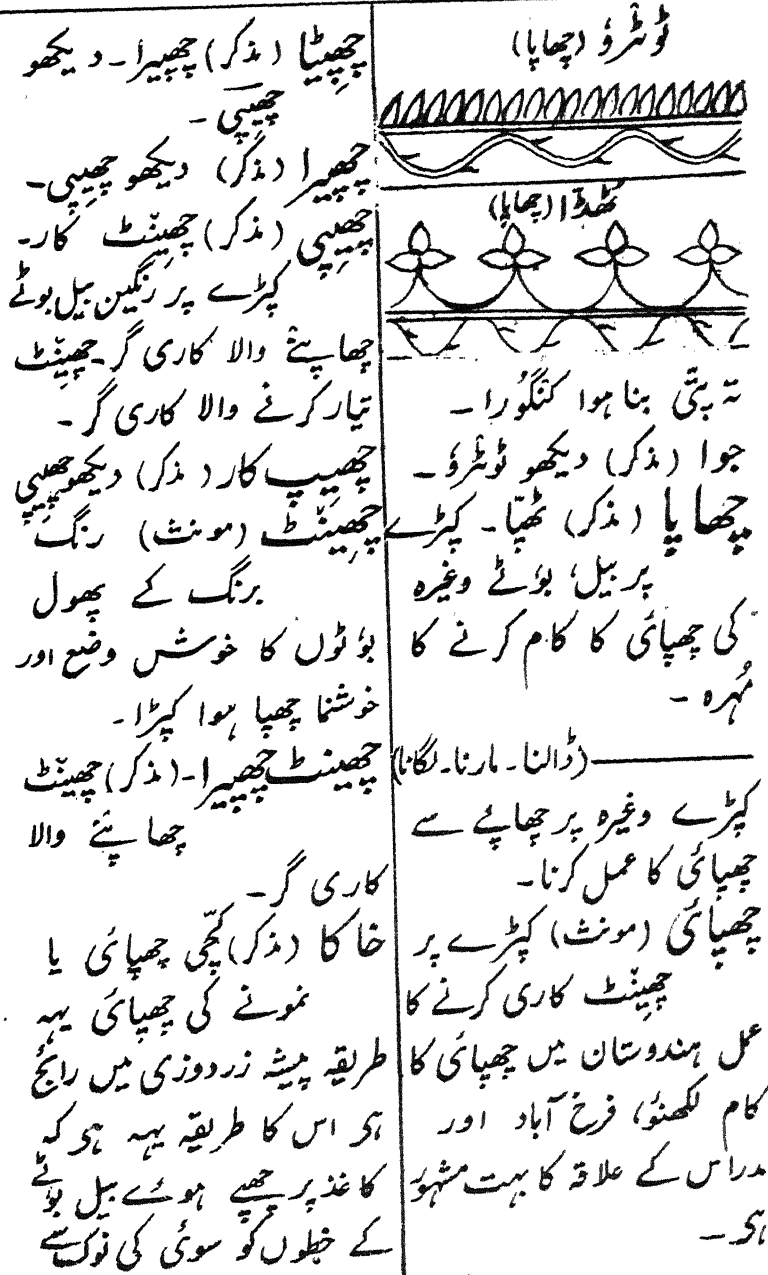 ٹونٹرؤ (چھاپا)
ٹھڈا (چھاپا)
تہ پتّی بنا ہوا کنگُورا۔
جوا (مذکر) دیکھو ٹونٹرؤ۔
چھاپا (مذکر) ٹھپّا۔ کپڑے
پر بیل، بوٗٹے وغیرہ
کی چھپائی کا کام کرنے کا
مُہرہ۔
——— (ڈالنا۔ مارنا۔ لگانا)
کپڑے وغیرہ پر چھاپے سے
چھپائی کا عمل کرنا۔
چھپائی (مونث) کپڑے پر
چھینٹ کاری کرنے کا
عمل ہندوستان میں چھپائی کا
کام لکھنؤ، فرخ آباد اور
مدراس کے علاقہ کا بہت مشہوٗر
ہی۔
چھیپٹا (مذکر) چھپیرا۔ دیکھو
چھیپی۔
چھپیرا (مذکر) دیکھو چھیپی۔
چھیپی (مذکر) چھینٹ کار۔
کپڑے پر رنگین بیل بوٹے
چھاپنے والا کاری گر۔ چھینٹ
تیار کرنے والا کاری گر۔
چھیپ کار (مذکر) دیکھو چھیپی
چھینٹ (مونث) رنگ
برنگ کے پھول
بوٗٹوں کا خوش وضع اور
خوشنما چھپا ہوا کپڑا۔
چھینٹ چھپیرا۔ (مذکر) چھینٹ
چھاپنے والا
کاری گر۔
خاکا (مذکر) کچّی چھپائی یا
نمونے کی چھپائی یہہ
طریقہ پیشہ زردوزی میں رائج
ہی اس کا طریقہ یہہ ہی کہ
کاغذ پر چھپے ہوے بیل بوٹے
کے خطوں کو سوئی کی نوک سے